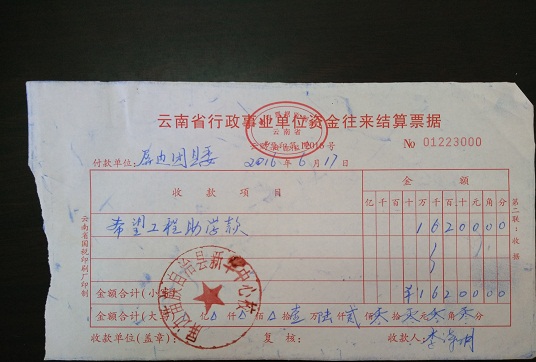 云南省行政事业单位资金往来结算票据
云南省
No 01223000
付款单位：屏边团县委 2016 年 6 月 17 日
收款项目 金额
亿 千 百 十 万 千 百 十 元 角 分
希望工程助学款 1 6 2 0 0 0 0
金额合计(小写) ¥ 1 6 2 0 0 0 0
金额合计(大写) 亿 仟 佰 拾 壹 万 陆 仟 贰 佰 拾 元 角 分
收款单位(盖章)： 复核： 收款人：
第二联：收据
云南省国税印刷厂印制
自治县新华中心校